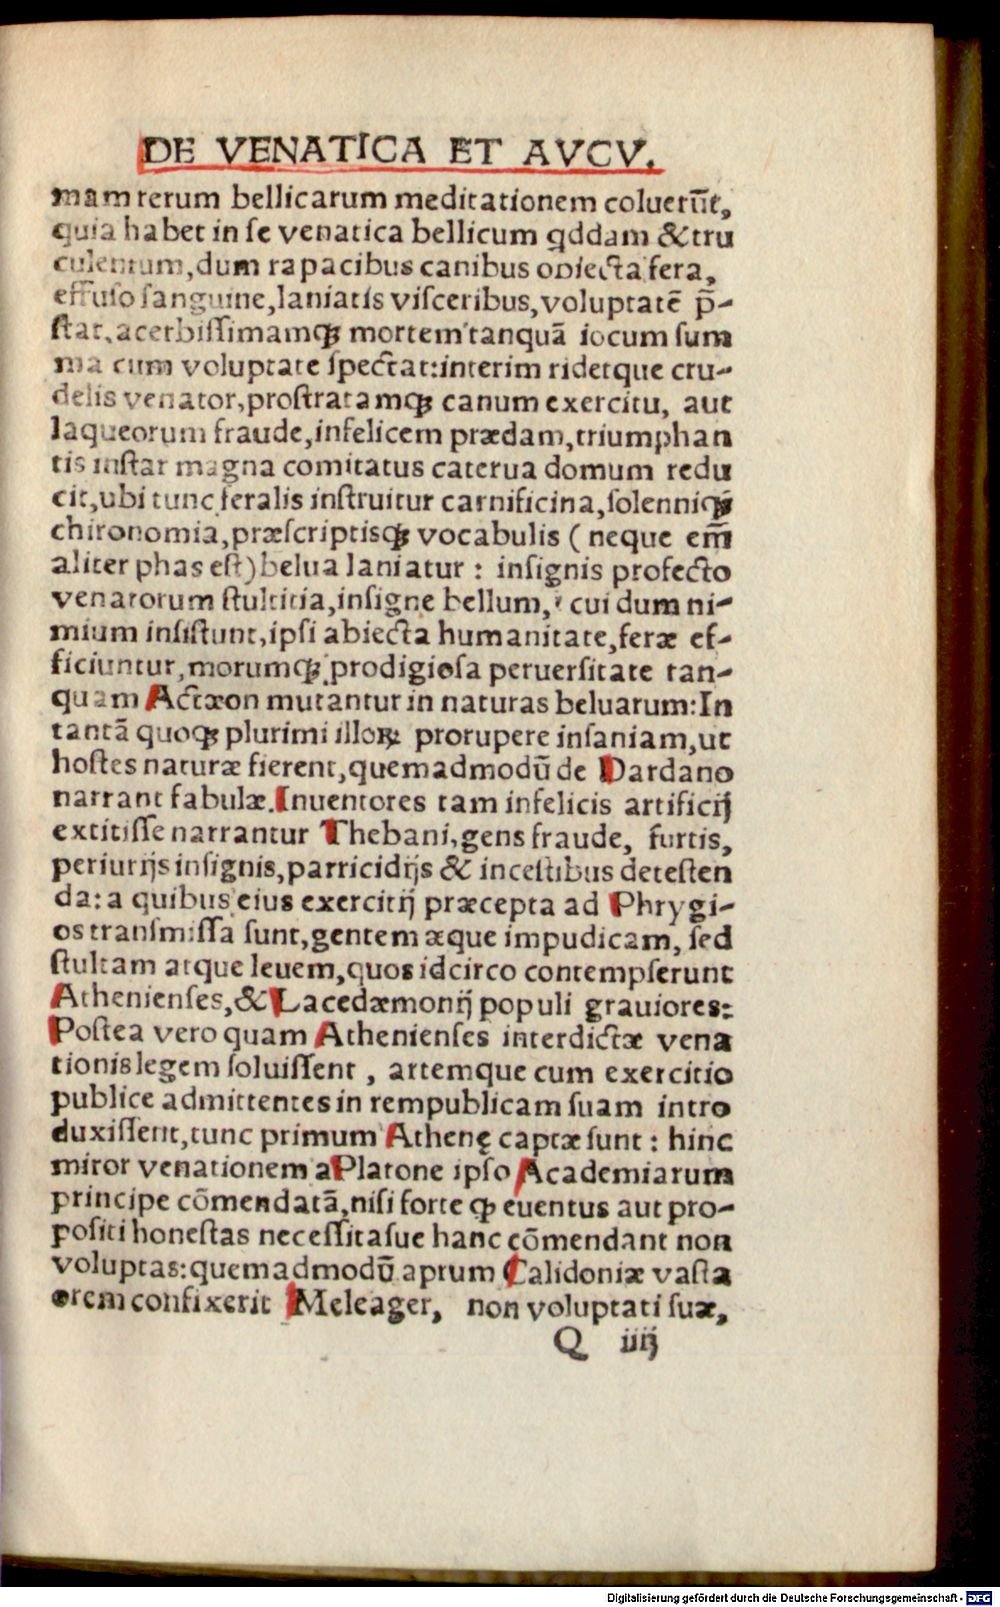 DE VENATICA ET AVCV.
mam rerum bellicarum meditationem coluerūt,
quia habet in se venatica bellicum qddam & tru
culentum, dum rapacibus canibus obiecta fera,
effuso sanguine, laniatis visceribus, voluptatē p̄-
stat, acerbissimamqꝫ mortem tanquā iocum sum
ma cum voluptate spectat: interim ridetque cru-
delis venator, prostratamqꝫ canum exercitu, aut
laqueorum fraude, infelicem prædam, triumphan
tis instar magna comitatus caterua domum redu
cit, ubi tunc feralis instruitur carnificina, solenniqꝫ
chironomia, præscriptisqꝫ vocabulis ( neque em̄
aliter phas est) belua laniatur : insignis profecto
venatorum stultitia, insigne bellum, cui dum ni-
mium insistunt, ipsi abiecta humanitate, feræ ef-
ficiuntur, morumqꝫ prodigiosa peruersitate tan-
quam Actæon mutantur in naturas beluarum: In
tantā quoqꝫ plurimi illoꝝ prorupere insaniam, ut
hostes naturæ fierent, quemadmodū de Dardano
narrant fabulæ. Inuentores tam infelicis artificij
extitisse narrantur Thebani, gens fraude, furtis,
periurijs insignis, parricidijs & incestibus detesten
da: a quibus eius exercitij præcepta ad Phrygi-
os transmissa sunt, gentem æque impudicam, sed
stultam atque leuem, quos idcirco contempserunt
Athenienses, & Lacedæmonij populi grauiores:
Postea vero quam Athenienses interdictæ vena
tionis legem soluissent , artemque cum exercitio
publice admittentes in rempublicam suam intro
duxissent, tunc primum Athenę captæ sunt : hinc
miror venationem a Platone ipso Academiarum
principe cōmendatā, nisi forte ꝙ euentus aut pro-
positi honestas necessitasue hanc cōmendant non
voluptas: quemadmodū aprum Calidoniæ vasta
orem confixerit Meleager, non voluptati suæ,
Q iiij
Digitalisierung gefördert durch die Deutsche Forschungsgemeinschaft - DFG